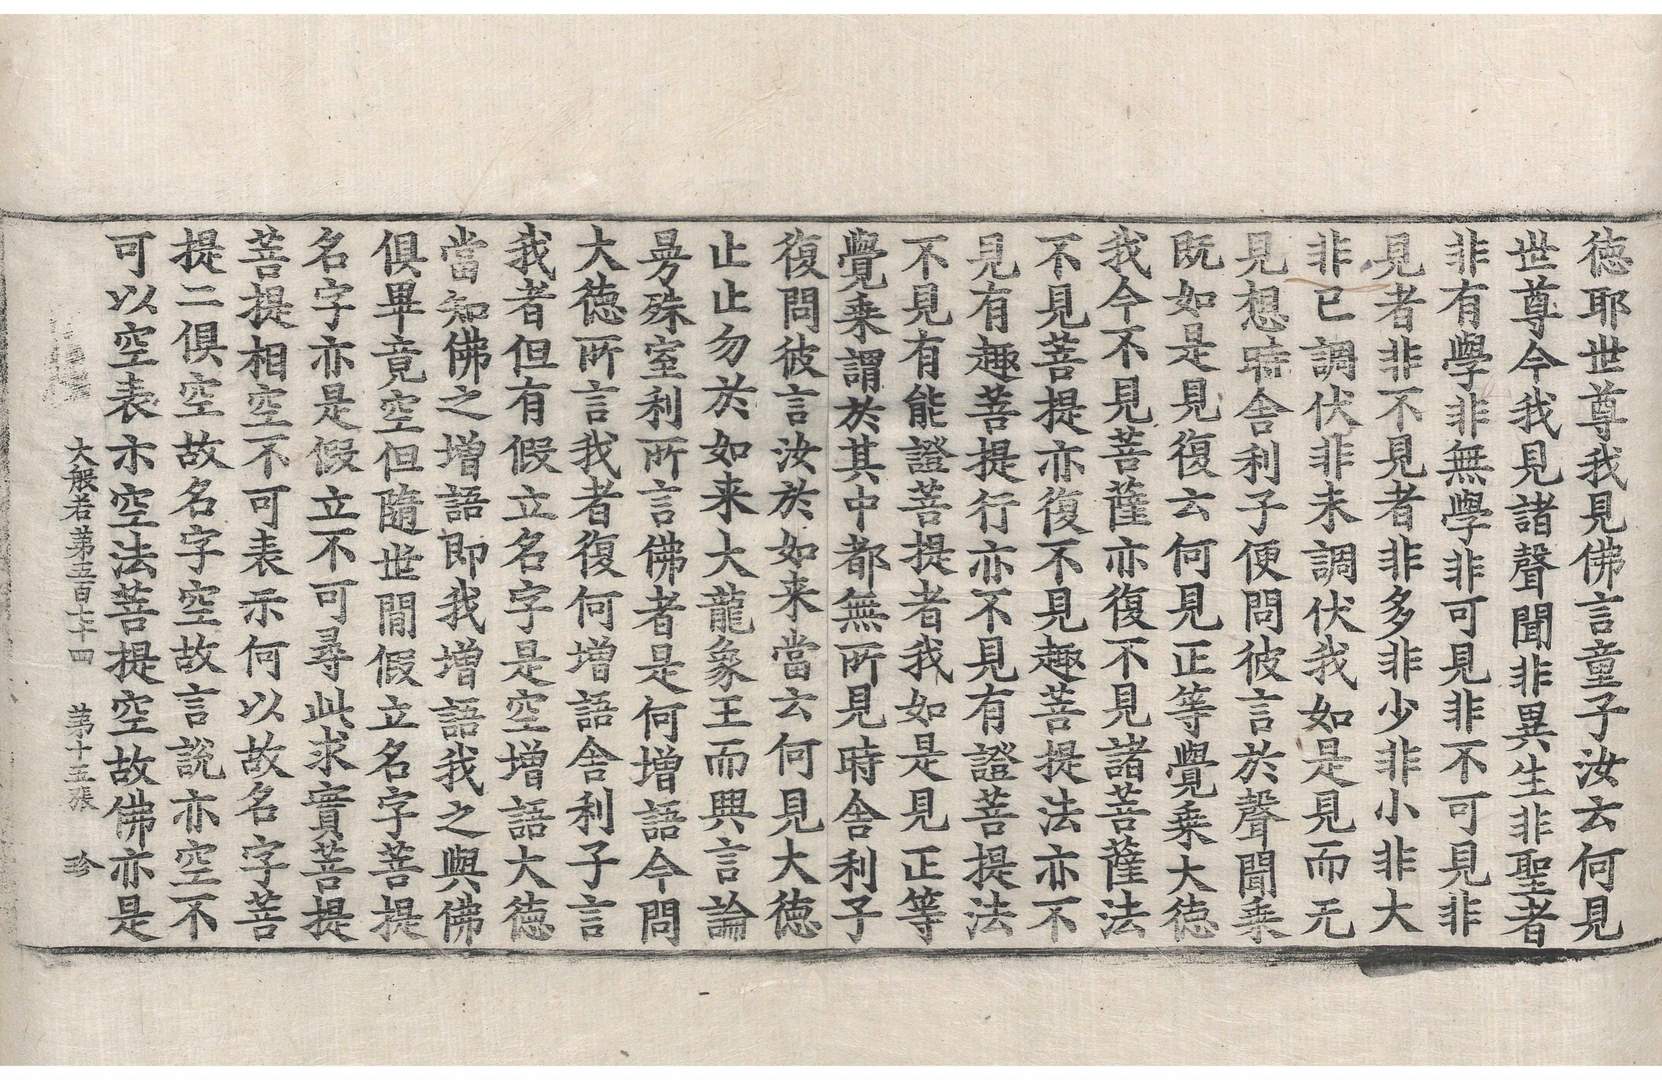 德耶世尊我見佛言童子汝云何見
世尊今我見諸聲聞非異生非聖者
非有學非無學非可見非不可見非
見者非不見者非多非少非小非大
非已調伏非未調伏我如是見而无
見想時舍利子便問彼言於聲聞乗
既如是見復云何見正等覺乗大德
我今不見菩薩亦復不見諸菩薩法
不見菩提亦復不見趣菩提法亦不
見有趣菩提行亦不見有證菩提法
不見有能證菩提者我如是見正等
覺乗謂於其中都無所見時舍利子
復問彼言汝於如来當云何見大德
止止勿於如来大龍象王而興言論
曼殊室利所言佛者是何增語今問
大德所言我者復何增語舍利子言
我者但有假立名字是空增語大德
當知佛之增語即我增語我之與佛
俱畢竟空但隨世間假立名字菩提
名字亦是假立不可尋此求實菩提
菩提相空不可表示何以故名字菩
提二俱空故名字空故言說亦空不
可以空表示空法菩提空故佛亦是
大般若第五百七十四 第十五張 珎